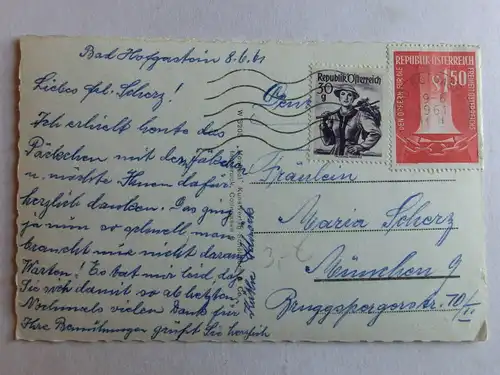 Bad Hofgastein 8.6.61
Liebes frl. Scherz!
Ich erhielt heute das
Päckchen mit dem
u. möchte Ihnen dafür
herzlich danken. Das ging
ja nun so schnell, man
braucht nur nicht darauf
Warten! Es tut mir leid das
Sie sich damit so ab
Nochmals vielen Dank für
Ihre Bemühungen grüßt Sie herzlich
Käthe
Republik Österreich
30 g
REPUBLIK ÖSTERREICH
1.50
DEN OPFERN FÜR DIE FREIHEIT ÖSTERREICHS
9-6
1961
Fräulein
Maria Scherz
München 9
Bruggspergerstr. 70/I.
3,- €